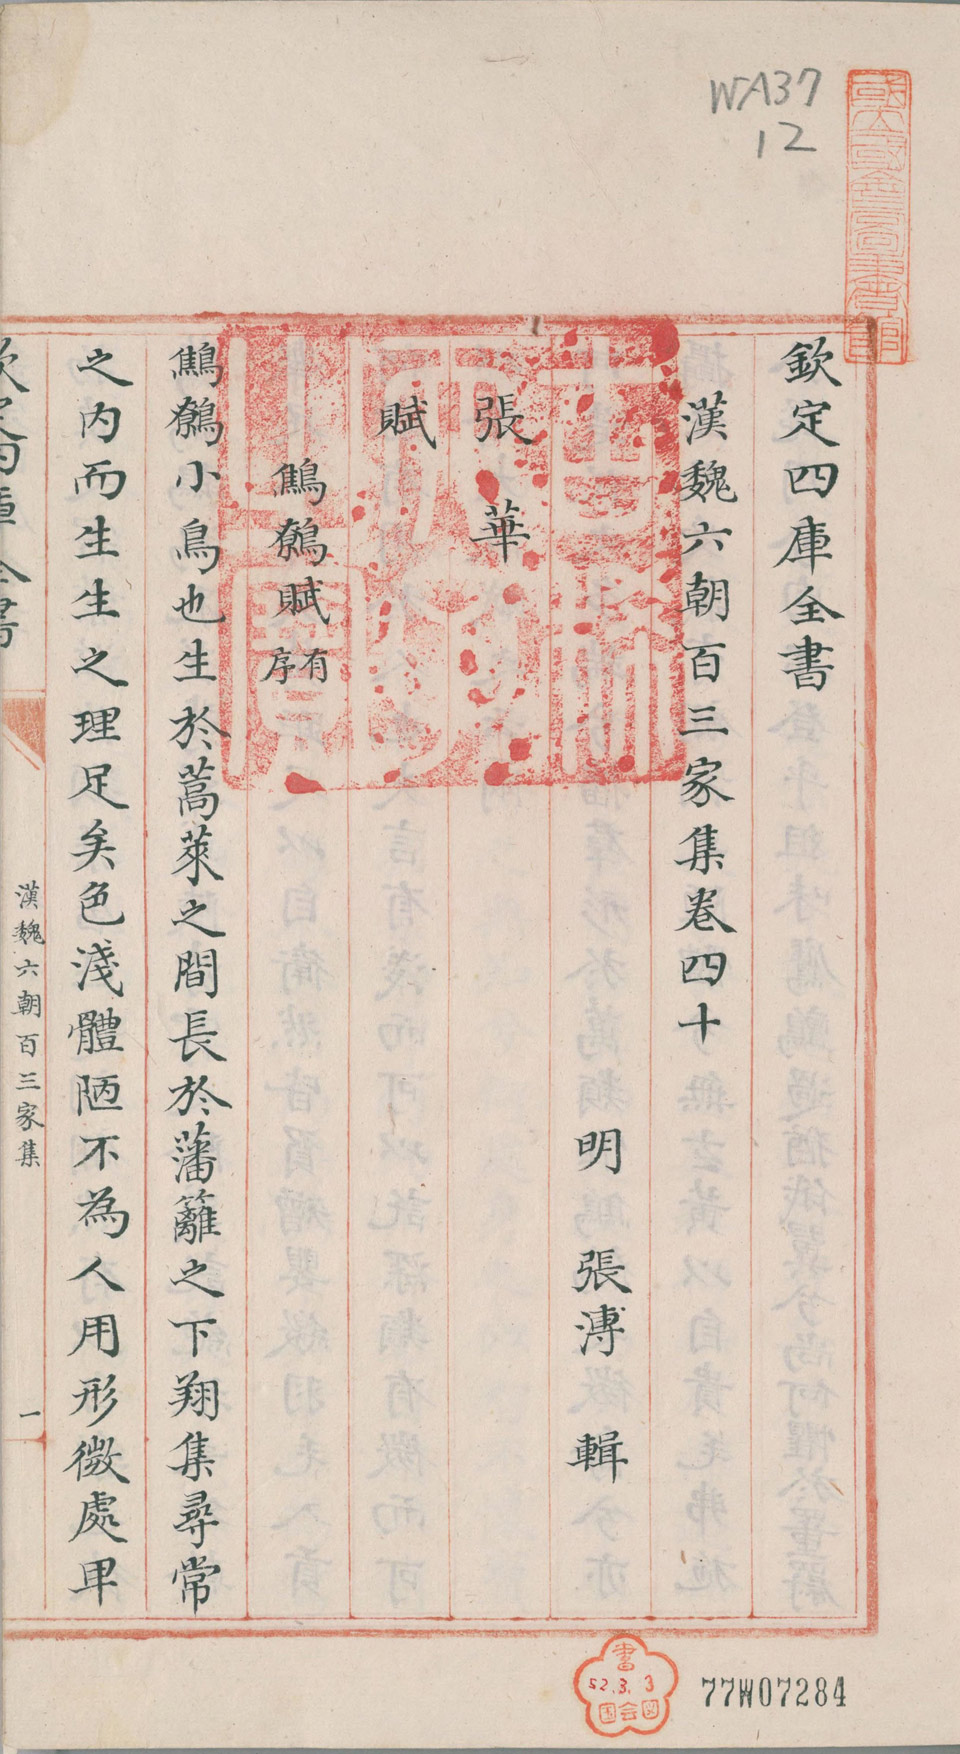 WA37
12
國立國會圖書館
欽定四庫全書
漢魏六朝百三家集卷四十
明 張溥 輯
張華
賦
鷦鷯賦有序
鷦鷯小鳥也生於蒿萊之間長於藩籬之下翔集尋常
之内而生生之理足矣色淺體陋不為人用形微處卑
欽定四庫全書
漢魏六朝百三家集
一
書
52.3.3
国会図
77W07284